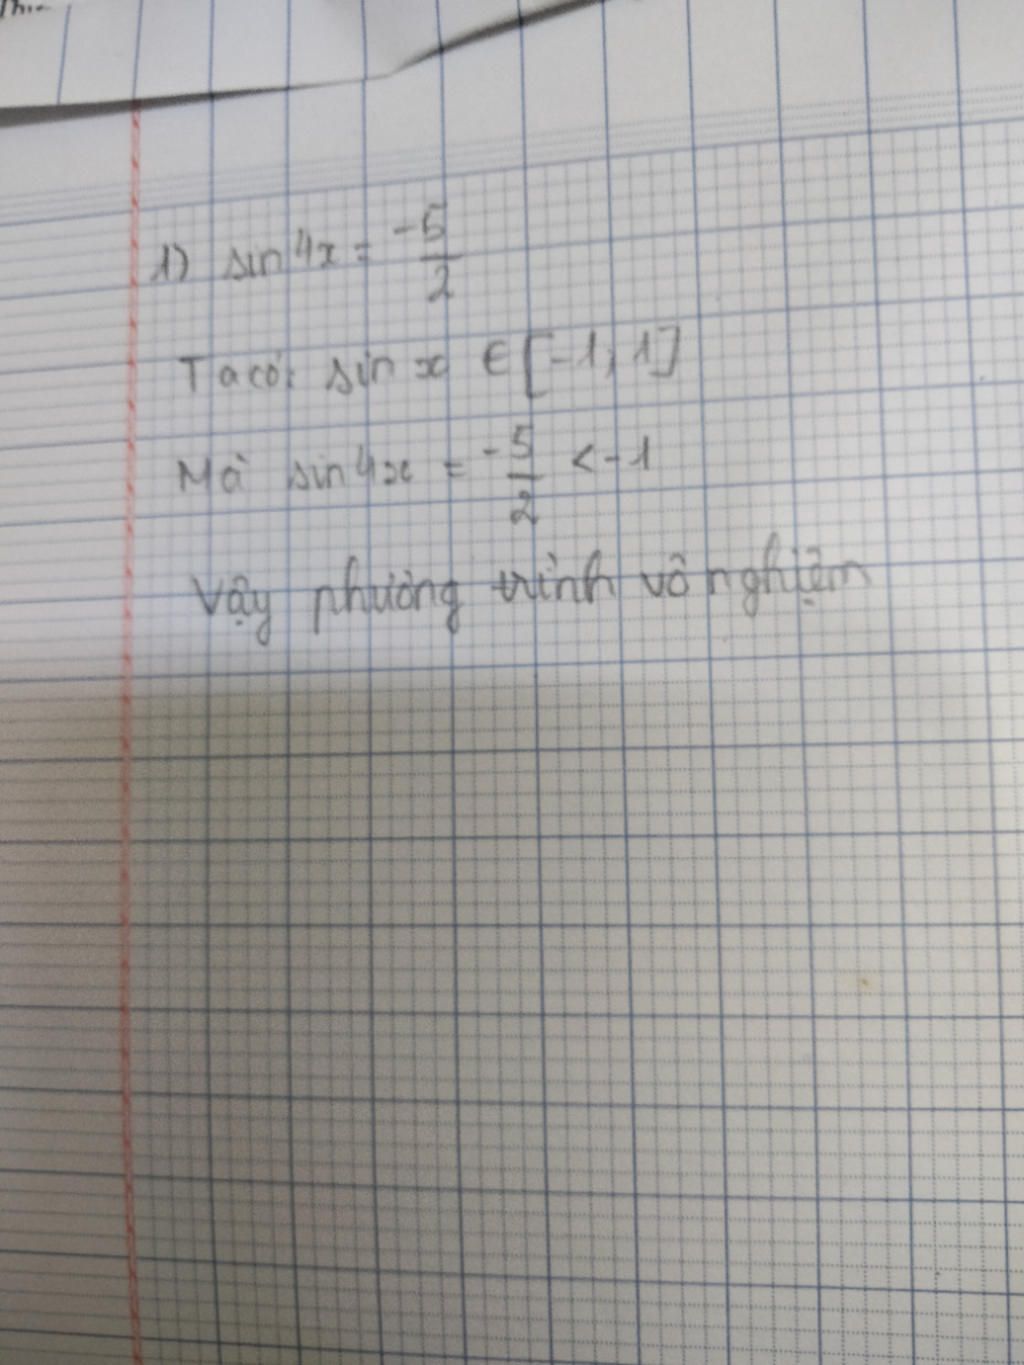 1) sin 4x = -5/2
Ta có: sin x ∈ [-1; 1]
Mà sin 4x = -5/2 < -1
Vậy phương trình vô nghiệm